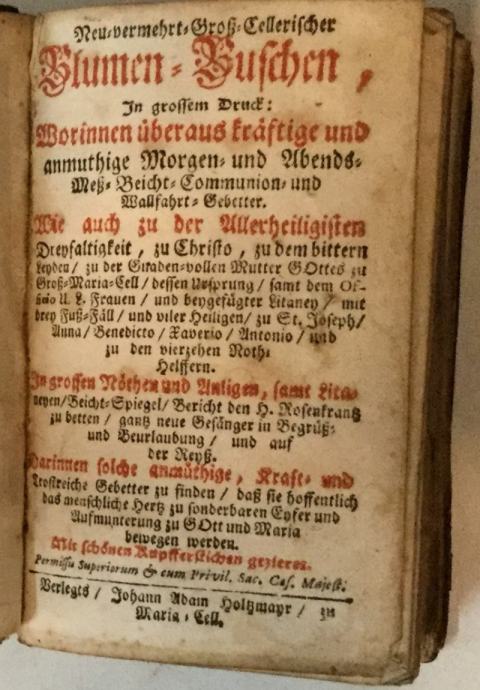 Neu-vermehrt-Groß-Cellerischer
Blumen-Buschen,
In grossem Druck:
Worinnen überaus kräftige und
anmuthige Morgen- und Abends-
Meß- Beicht- Communion- und
Wallfahrt-Gebetter.
Wie auch zu der Allerheiligisten
Dreyfaltigkeit, zu Christo, zu dem bittern
Leyden / zu der Gnaden-vollen Mutter GOttes zu
Groß-Maria-Cell / dessen Ursprung / samt dem Of-
ficio U. L. Frauen / und beygefügter Litaney / mit
drey Fuß-Fäll / und viler Heiligen / zu St. Joseph /
Anna / Benedicto / Xaverio / Antonio / und
zu den vierzehen Noth-
Helffern.
In grossen Nöthen und Anligen, samt Lita-
neyen / Beicht-Spiegel / Bericht den H. Rosenkrantz
zu betten / gantz neue Gesänger in Begrüß-
und Beurlaubung / und auf
der Reyß.
Darinnen solche anmüthige, Krafft- und
Trostreiche Gebetter zu finden / daß sie hoffentlich
das menschliche Hertz zu sonderbaren Eyfer und
Aufmunterung zu GOtt und Maria
bewegen werden.
Mit schönen Kupfferstichen gezieret.
Permissu Superiorum & cum Privil. Sac. Cæs. Majest.
Verlegts / Johann Adam Holtzmayr / zu
Maria-Cell.